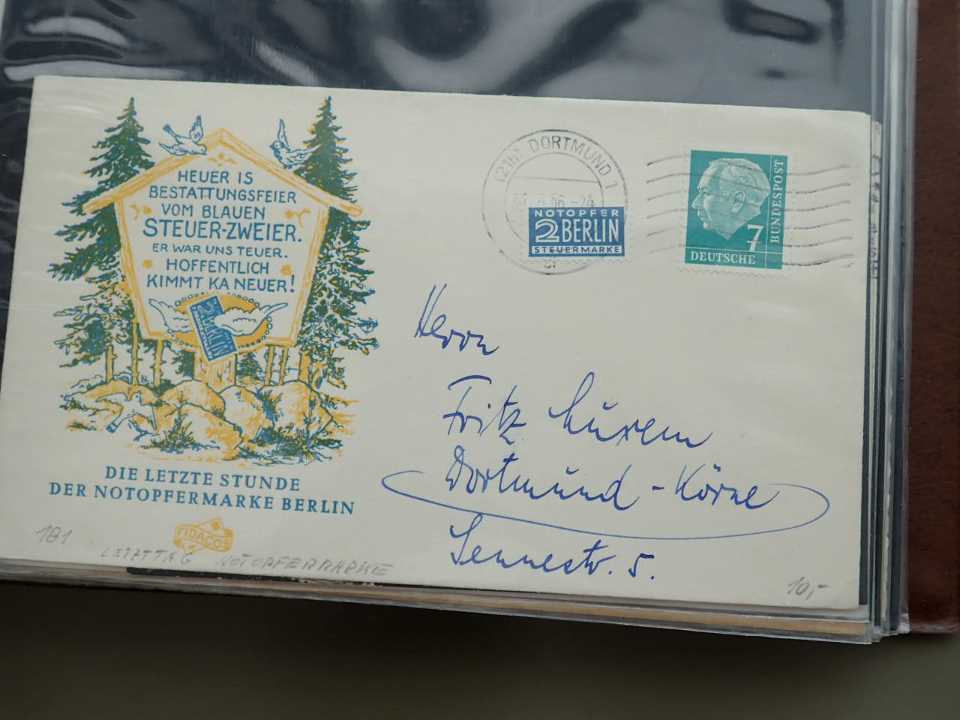 HEUER IS
BESTATTUNGSFEIER
VOM BLAUEN
STEUER-ZWEIER.
ER WAR UNS TEUER.
HOFFENTLICH
KIMMT KA NEUER!
DIE LETZTE STUNDE
DER NOTOPFERMARKE BERLIN
FIDACOS
181
LETZTTAG NOTOPFERMARKE
(21b) DORTMUND 1
56.-24
NOTOPFER
2 BERLIN
STEUERMARKE
7
DEUTSCHE
BUNDESPOST
Herrn
Fritz
Dortmund-Körne
Sennestr. 5.
10,-